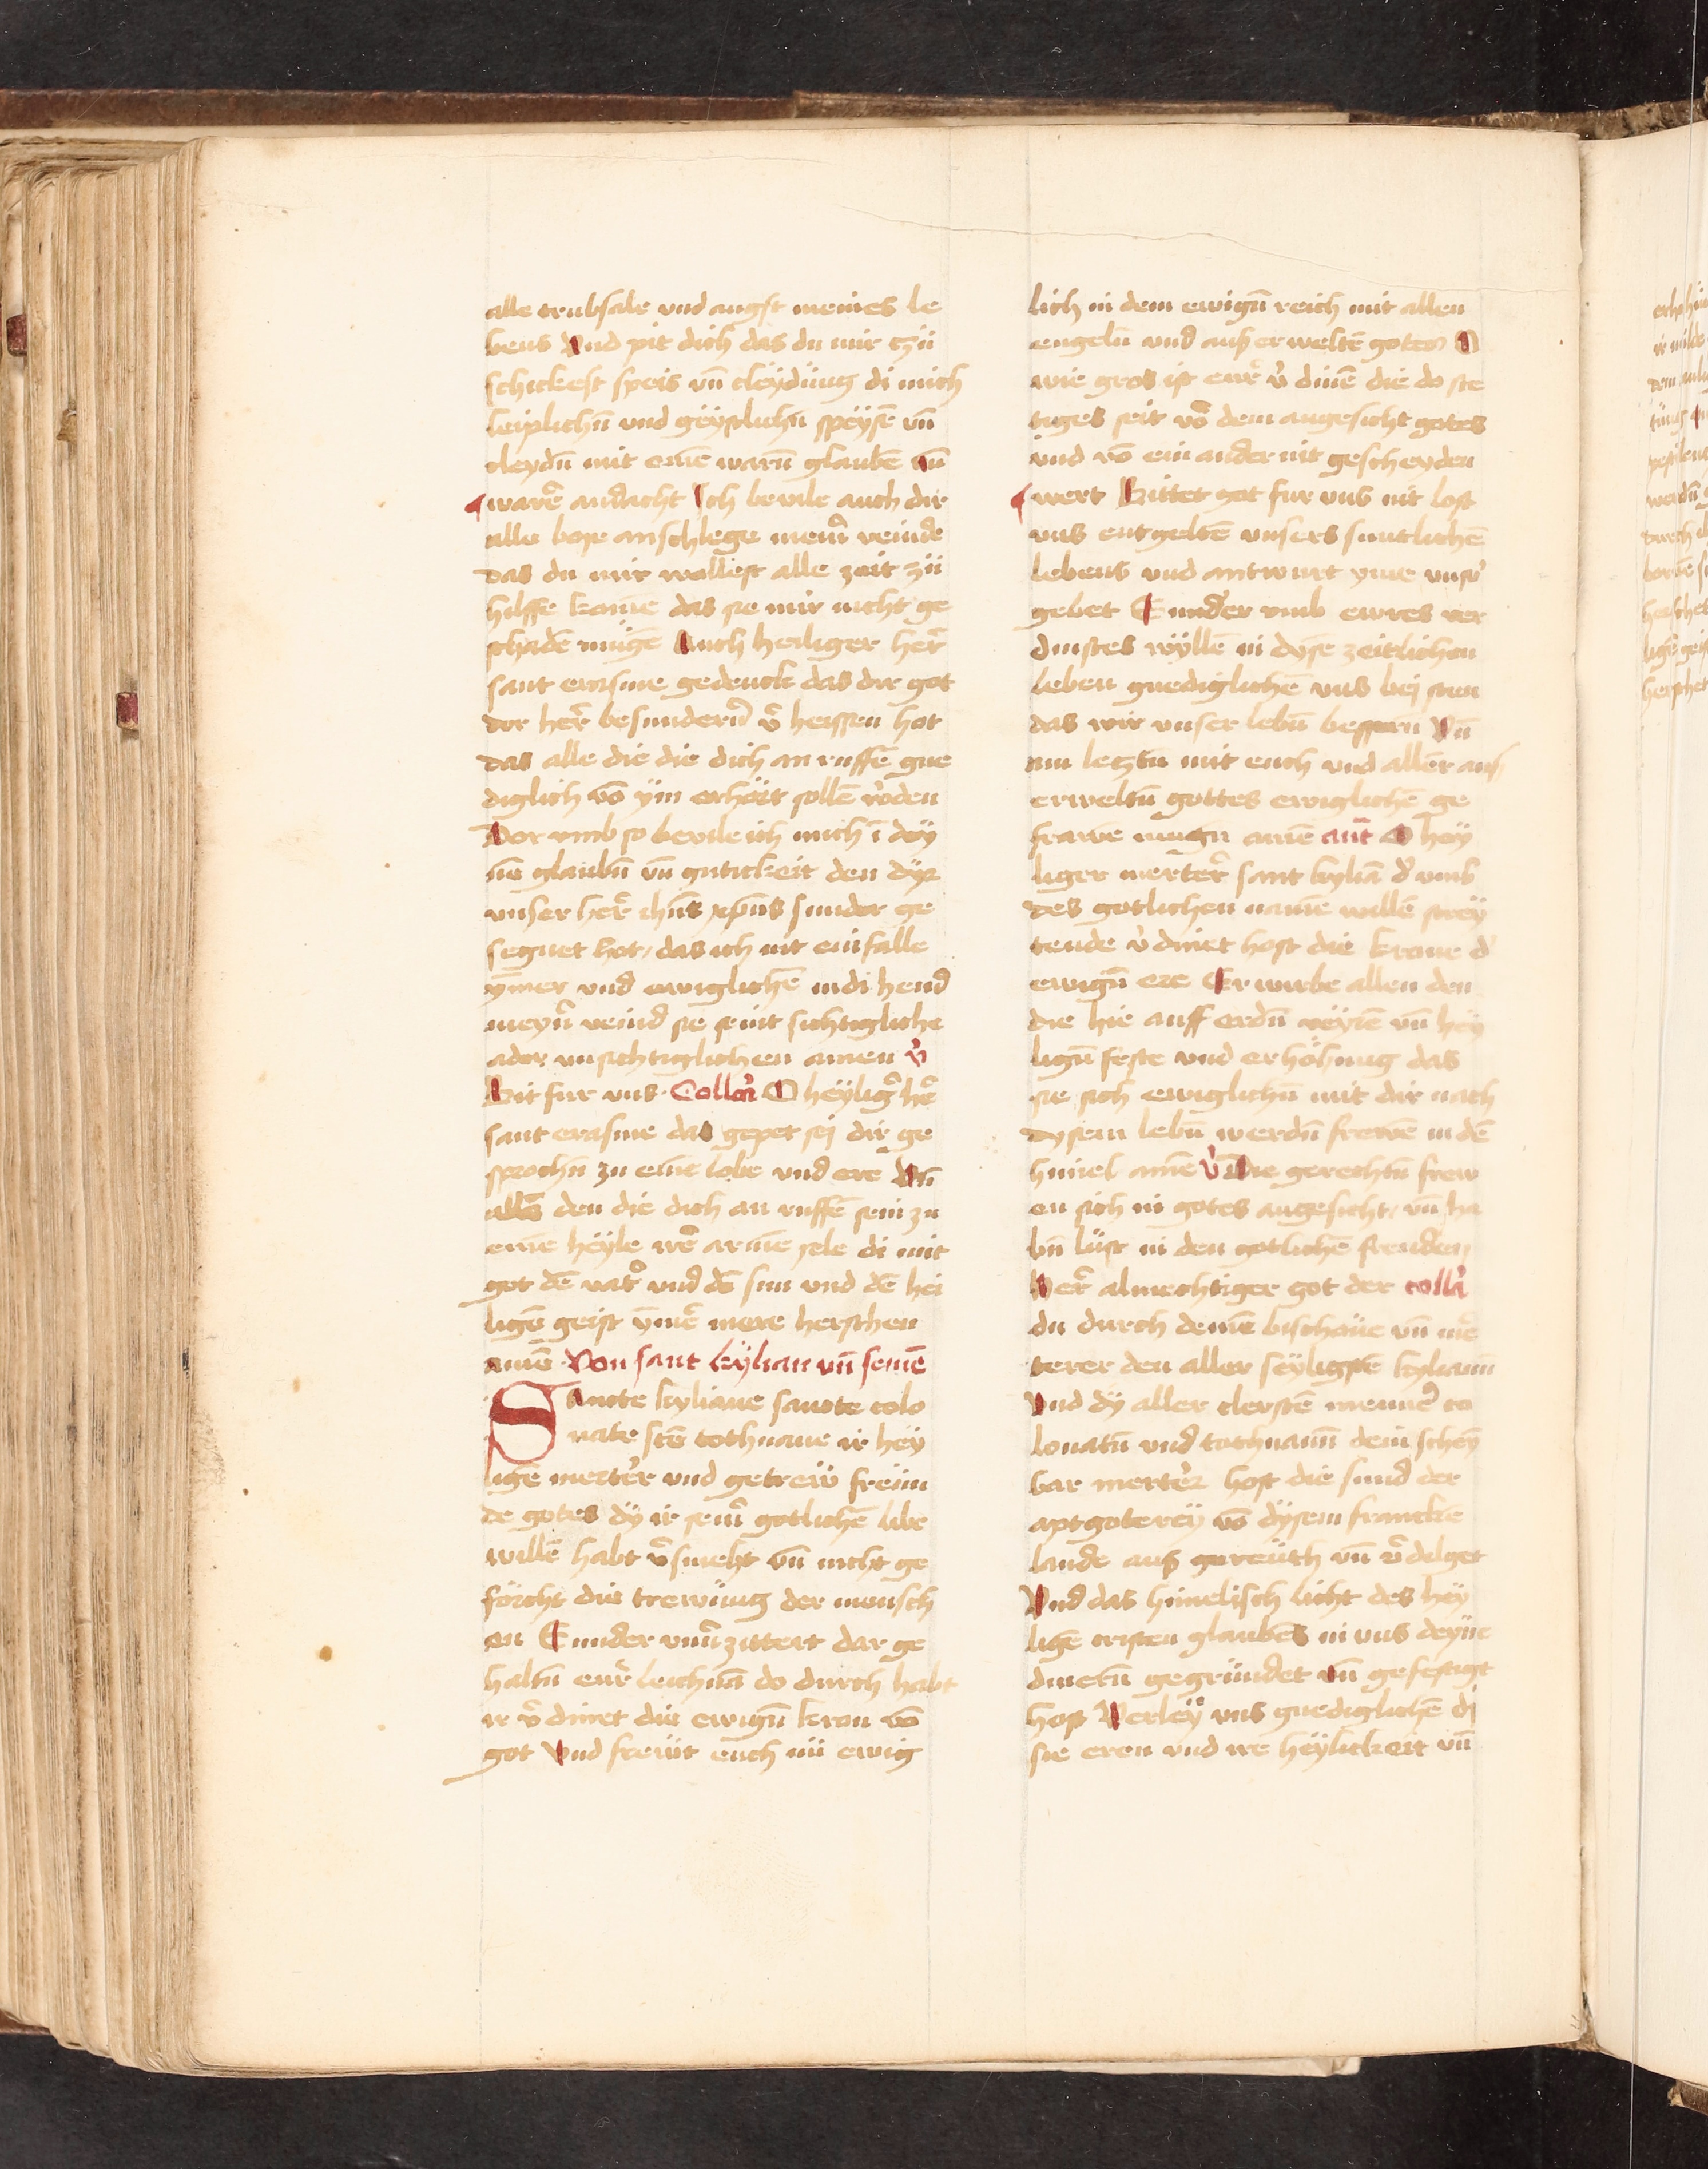 alle trubsale vnd angst meines le
bens Vnd pit dich das du mir tzü
schickest speis vn̄ cleÿdüng di mich
leiplichn̄ vnd geÿstlichn̄ speÿsē vn̄
cleydn̄ mit einē warn̄ glaubē vn̄
warē andacht Ich bevile auch dir
alle bose anschlege meinr̄ veinde
das du mir wollest alle zeit zü
hilffe komē das sie mir nicht ge
schadē mügē Auch heiliger her̄
sant erasme gedenck das dir got
der her̄ besundern̄ v̄ heissen hat
das alle die die dich an ruffē gne
diglich vō ÿm erhört sollē v̄den
Dor vmb so bevile ich mich ī deÿ
nē glaubn̄ vn̄ gutickeit den dÿr
vnser her̄ ihūs xp̄us sunder ge
segnet hot, das ich nit ein falle
ÿm̄er vnd ewiglichē in di hend
meyn̄ veind sie seint sichtigliche
ader vnsichtiglichen amen v̄
Bit fur vns · Collcā O heÿliḡ her̄
sant erasme das gepet sej dir ge
sprochn̄ zu einē lobe vnd ere Vn̄
allē den die dich an ruffē sein zu
einē heÿle irē armē sele di mit
got dē vat̄ vnd dē sun vnd dē hei
ligē geist ÿmē mere herschen
amē · Von sant kÿlian vn̄ seinē
Sancte kyliane sancte colo
nate sc̄te tothnane ir heÿ
ligē merter̄ vnd getrew freün
de gotes dÿ ir seinr̄ gotlichē libe
willē habt v̄smeht vn̄ nicht ge
förcht die trewüng der mensch
en Sunder vnūzittert dar ge
haltn̄ eur̄ leichnā do durch habt
ir v̄dinet die ewign̄ kron vō
got Vnd frewt euch nü ewig
lich in dem ewign̄ reich mit allen
engeln̄ vnd auserweltē gotes O
wie gros ist eur̄ v̄dinē die do ste
tiges seit vō dem angesicht gotes
vnd vō ein ander nit gescheyden
wert Bittet got fur vns nit lost
vns entgeltē vnsers suntlichē
lebens vnd antwurt yme vns̄
gebet Sunder vmb ewres ver
dinstes wÿllē in dysē zeitlichen
leben gnediglichē vns bej sten
das wir vnser lebn̄ bessern Vn̄
am letztn̄ mit euch vnd allen aus
erweltn̄ gottes ewiglichē ge
frawē mugn̄ amē an̄t O heÿ
liger merter̄ sant kyliā d̄ vmb
des gotlichen namē willē streÿ
tende v̄dinet host die krone d̄
ewign̄ ere Er wirbe allen den
die hie auff erdn̄ veÿrē vn̄ heÿ
lign̄ feste vnd erhöbung das
sie sich ewiglichn̄ mit dir nach
dysem lebn̄ werdn̄ frewē in dē
himel amē v̄ Die gerechtn̄ frew
en sich in gotes angesicht, vn̄ ha
bn̄ lüst in den gotlichē freuden
Her̄ almechtiger got der collcā
du durch deinē bischave vn̄ mē
terer den aller seÿligstē kylianū
Vnd dÿ aller clerstē menner̄ co
lonatū vnd tothnanū dein scheÿ
bar merter̄ host die sund der
aptgoterey vō dÿsem francke
lande aus gereüth vn̄ v̄dilget
Vnd das himelisch licht des heÿ
ligē cristen glaubēs in vns deÿne
dinern̄ gegründet vn̄ gefestigt
host Verleÿ vns gnediglichē di
sie eren vnd ire heÿlickeit vn̄